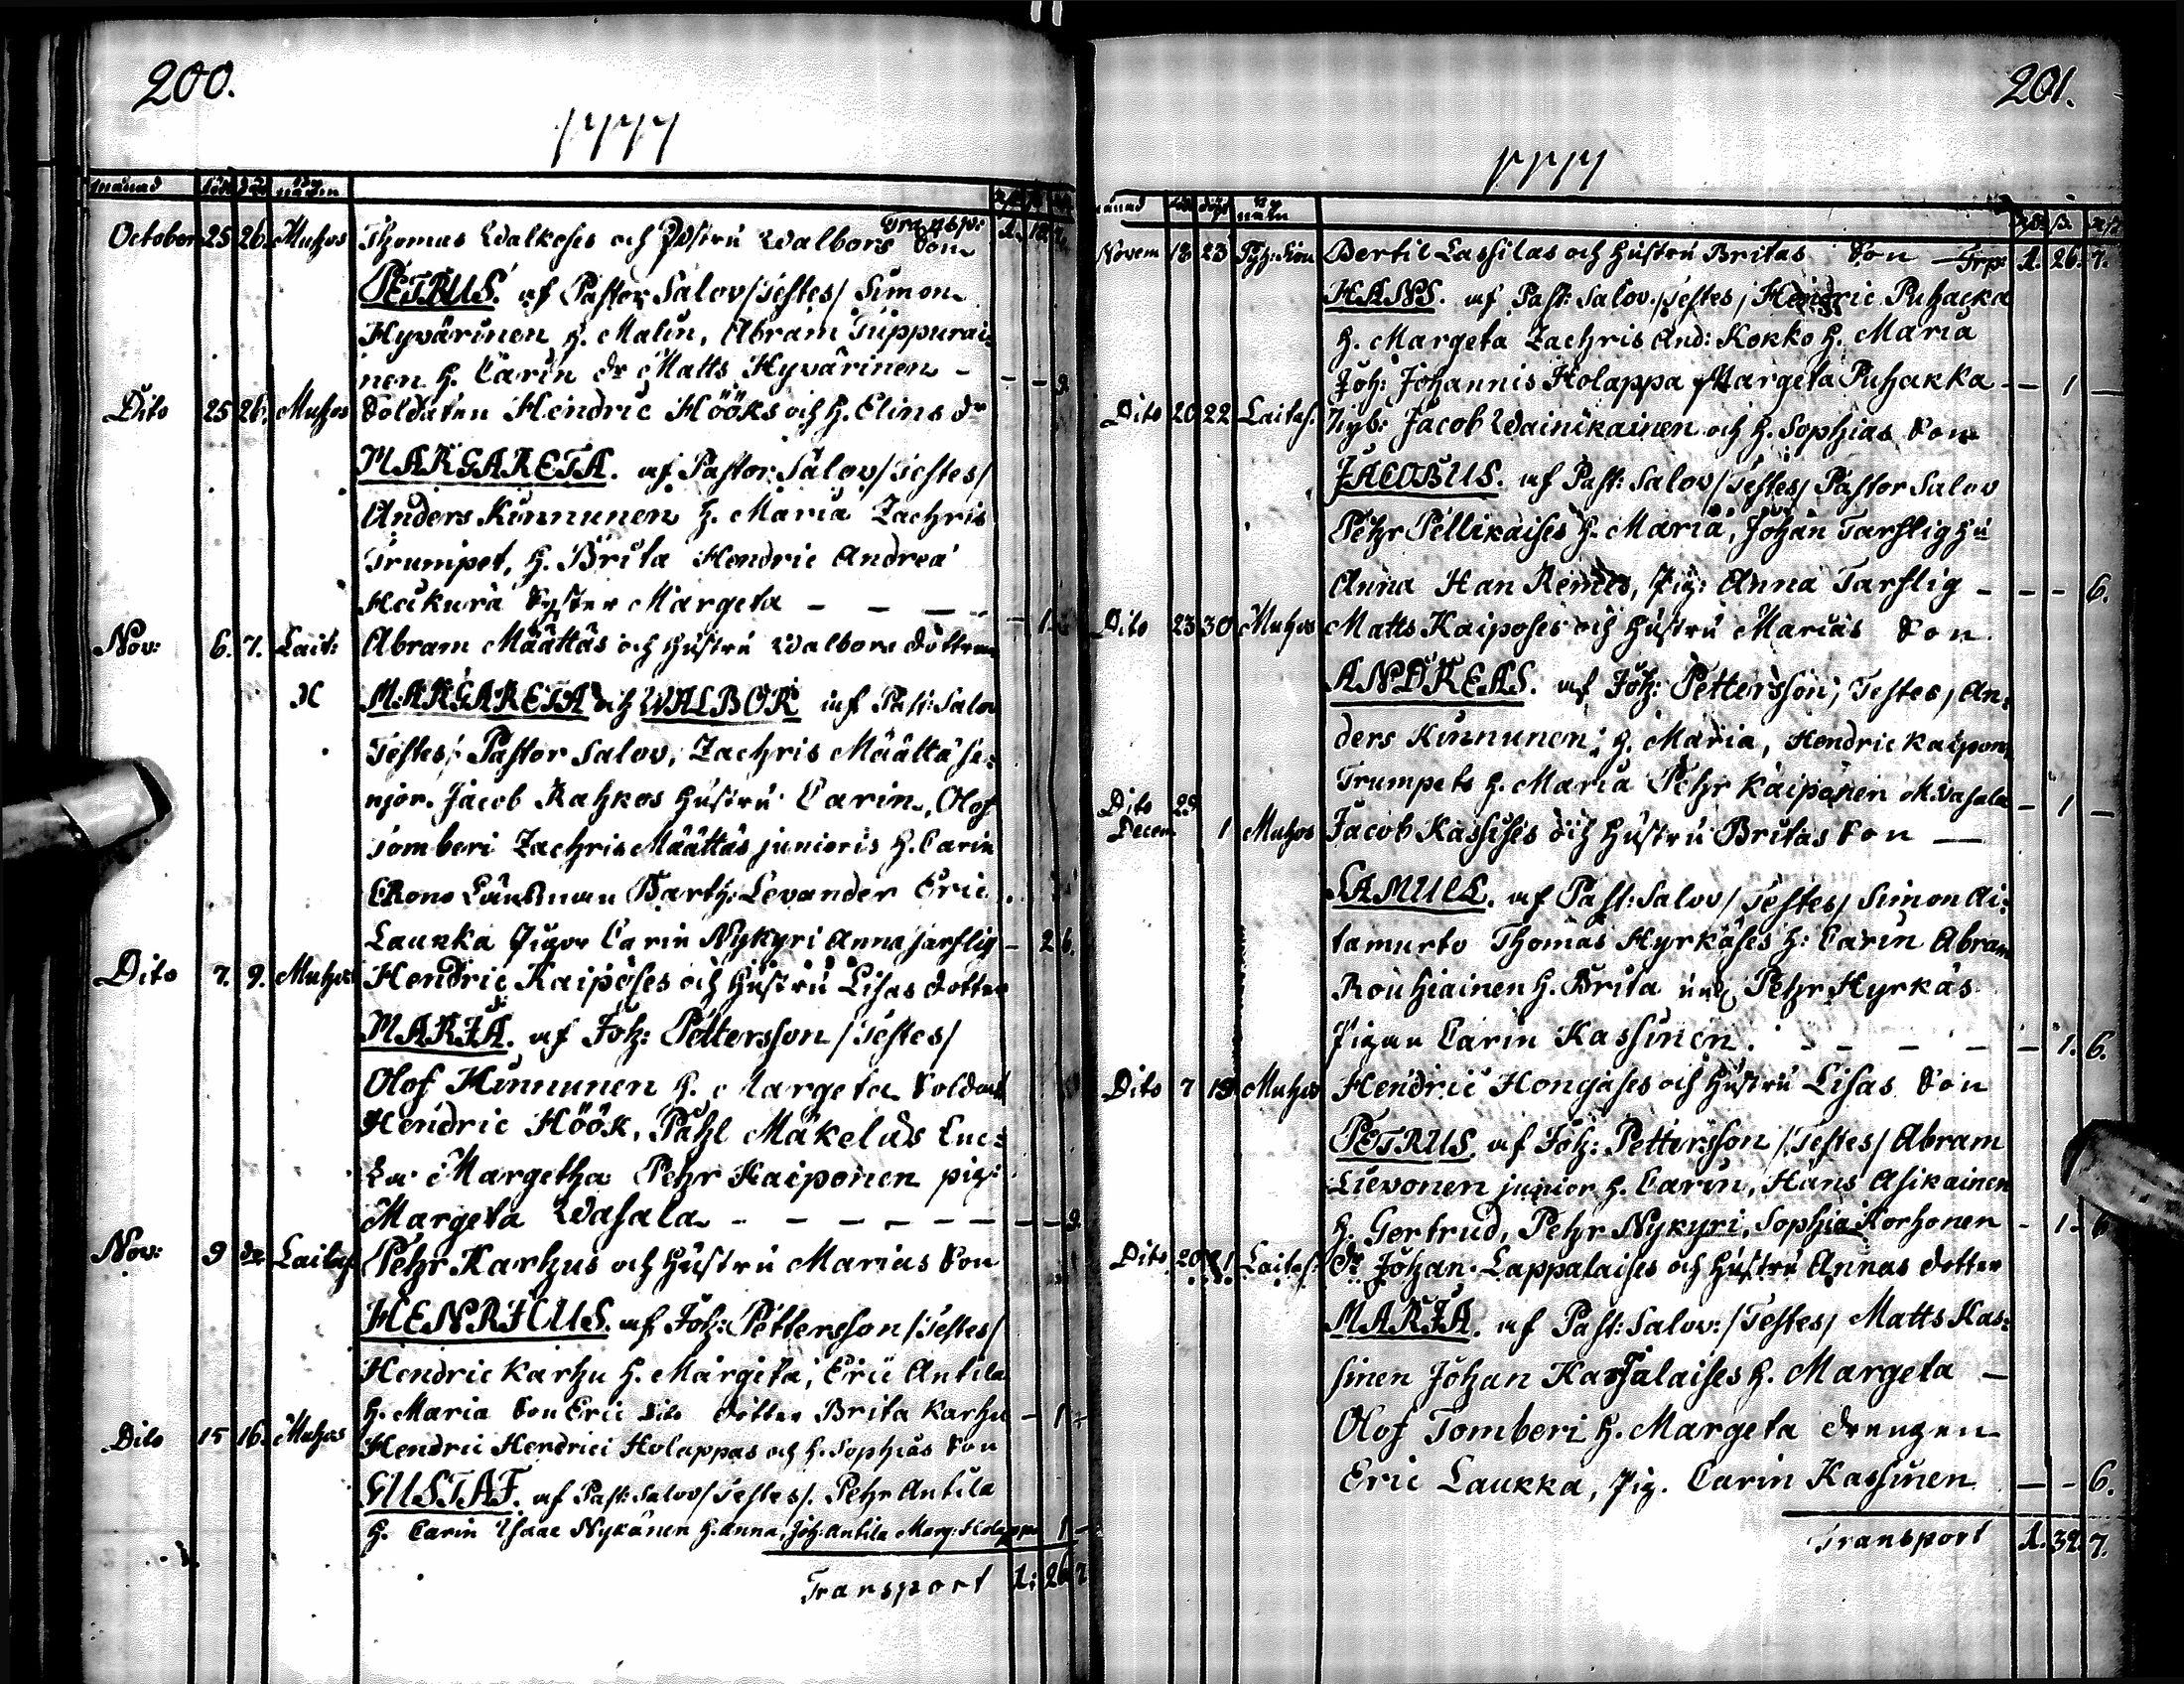 200.
1777
månad född döpt By namn
Transp:
October 25 26. Muhos Thomas Walkoses och Hustru Walbors Son 1. 18.
PETRUS. af Pastor Salov /Testes/ Simon
Hyvärinen h. Malin, Abram Tuppurai:
nen h. Carin dr Matts Hyvärinen - - - 9.
Dito 25 26. Muhos Soldaten Hendric Hööks och h. Elins dr
MARGARETA. af Pastor Salov /Testes/
Anders Kinnunen h. Maria Zachris
Trumpet, h. Brita Hendric Andreä
Heikurä Syster Margeta - - - - 1.
Nov: 6. 7. Lait: Abram Määttäs och Hustru Walbors döttrar
MARGARETA och WALBOR af Past: Salov
Testes/ Pastor Salov, Zachris Määttä se:
njor. Jacob Rahkos Hustru Carin, Olof
Tomberi Zachris Määttäs junioris h. Carin
Crono Länsman Barth: Levander Eric
Laukka Pigor Carin Nykyri Anna Tarflig - 2 6.
Dito 7. 9. Muhos Hendric Kaiposes och Hustru Lisas dotter
MARIA. af Joh: Pettersson /Testes/
Olof Kinnunen h. Margeta Soldat
Hendric Höök, Påhl Mäkeläs Enc:
ka Margetha Pehr Kaiponen pig:
Margeta Wasala - - - - - - - - 9.
Nov: 9 do Laitas. Pehr Karhus och Hustru Marias Son
HENRICUS. af Joh: Pettersson /Testes/
Hendric Karhu h. Margeta, Eric Antila
h. Maria Son Eric Dito dotter Brita Karhu - 1 -
Dito 15 16. Muhos Hendric Hendrici Holappas och h. Sophias Son
GUSTAF. af Past: Salov /Testes/. Pehr Antila
h. Carin Isaac Nykänen h. Anna, Joh: Antila Marg: Holappa 1 -
Transport 1. 26 7
201.
1777
månad född döpt By namn
Novem 18 23 Bertil Lassilas och Hustru Britas Son - Trp: 1. 26. 7.
HANS. af Past: Salov. /Testes/ Hendric Puhacka
h. Margeta Zachris And: Kokko h. Maria
Joh: Johannis Holappa Margeta Puhakka - - 1 -
Dito 20 22 Laitas. Nyb: Jacob Wainikainen och h. Sophias Son
JACOBUS. af Past: Salov /Testes/ Pastor Salov
Pehr Pellikaises h. Maria, Johan Tarflig hu
Anna Han Remes, Pig: Anna Tarflig - - - 6.
Dito 23 30 Muhos Matts Kaiposes och Hustru Marias Son
ANDREAS. af Joh: Pettersson, Testes, An:
ders Kinnunen, h. Maria, Hendric Kaipon:
Trumpets h. Maria Pehr Kaiponen M. Vasala - 1 -
Dito 29
Decem 1 Muhos Jacob Kassises och Hustru Britas Son -
SAMUEL. af Past: Salov /Testes/ Simon Ai:
tamurto Thomas Hyrkäses h: Carin Abram
Rouhiainen h. Brita ung Pehr Hyrkäs
Pigan Carin Kassinen. - - - - - 1. 6.
Dito 7 13 Muhos Hendric Hongases och Hustru Lisas Son
PETRUS. af Joh: Pettersson /Testes/ Abram
Lievonen junior h. Carin, Hans Asikainen
h. Gertrud, Pehr Nykyri, Sophia Korhonen - 1 - 6
Dito 20 21 Laitas. dr Johan Lappalaises och Hustru Annas dotter
MARIA. af Past: Salov: /Testes/ Matts Kas:
sinen Johan Karjalaises h. Margeta -
Olof Tomberi h. Margeta drengen
Eric Laukka, Pig. Carin Kassinen - - 6.
Transport 1. 32. 7.